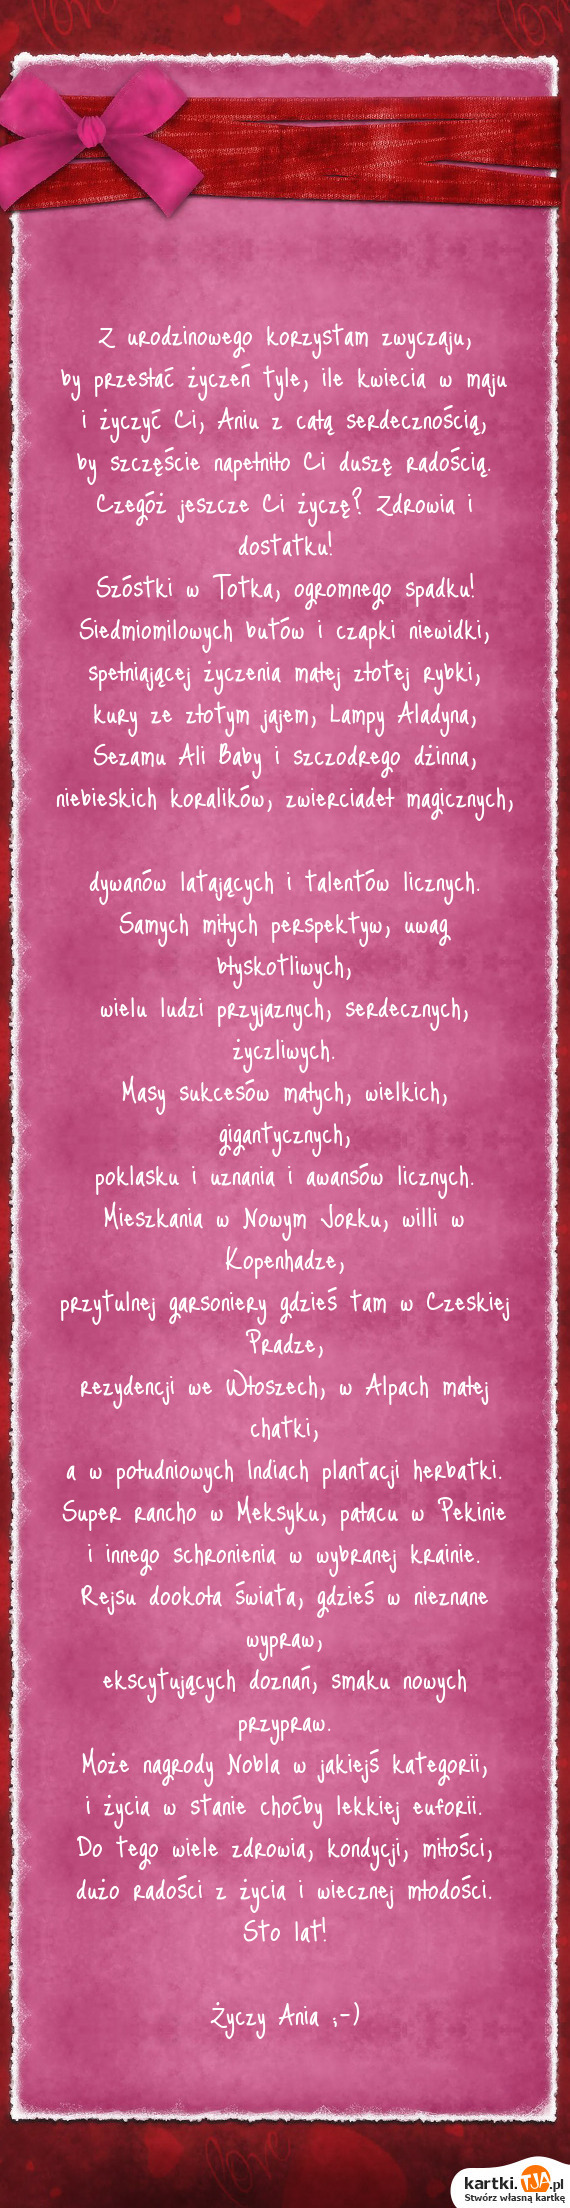 Z urodzinowego korzystam zwyczaju,
by przesłać życzeń tyle, ile kwiecia w maju
i życzyć Ci, Aniu z całą serdecznością,
by szczęście napełniło Ci duszę radością.
Czegóż jeszcze Ci życzę? Zdrowia i
dostatku!
Szóstki w Totka, ogromnego spadku!
Siedmiomilowych butów i czapki niewidki,
spełniającej życzenia małej złotej rybki,
kury ze złotym jajem, Lampy Aladyna,
Sezamu Ali Baby i szczodrego dżinna,
niebieskich koralików, zwierciadeł magicznych,
dywanów latających i talentów licznych.
Samych miłych perspektyw, uwag
błyskotliwych,
wielu ludzi przyjaznych, serdecznych,
życzliwych.
Masy sukcesów małych, wielkich,
gigantycznych,
poklasku i uznania i awansów licznych.
Mieszkania w Nowym Jorku, willi w
Kopenhadze,
przytulnej garsoniery gdzieś tam w Czeskiej
Pradze,
rezydencji we Włoszech, w Alpach małej
chatki,
a w południowych Indiach plantacji herbatki.
Super rancho w Meksyku, pałacu w Pekinie
i innego schronienia w wybranej krainie.
Rejsu dookoła świata, gdzieś w nieznane
wypraw,
ekscytujących doznań, smaku nowych
przypraw.
Może nagrody Nobla w jakiejś kategorii,
i życia w stanie choćby lekkiej euforii.
Do tego wiele zdrowia, kondycji, miłości,
dużo radości z życia i wiecznej młodości.
Sto lat!
Życzy Ania ;-)
love
kartki.TJA.pl
Stwórz własną kartkę